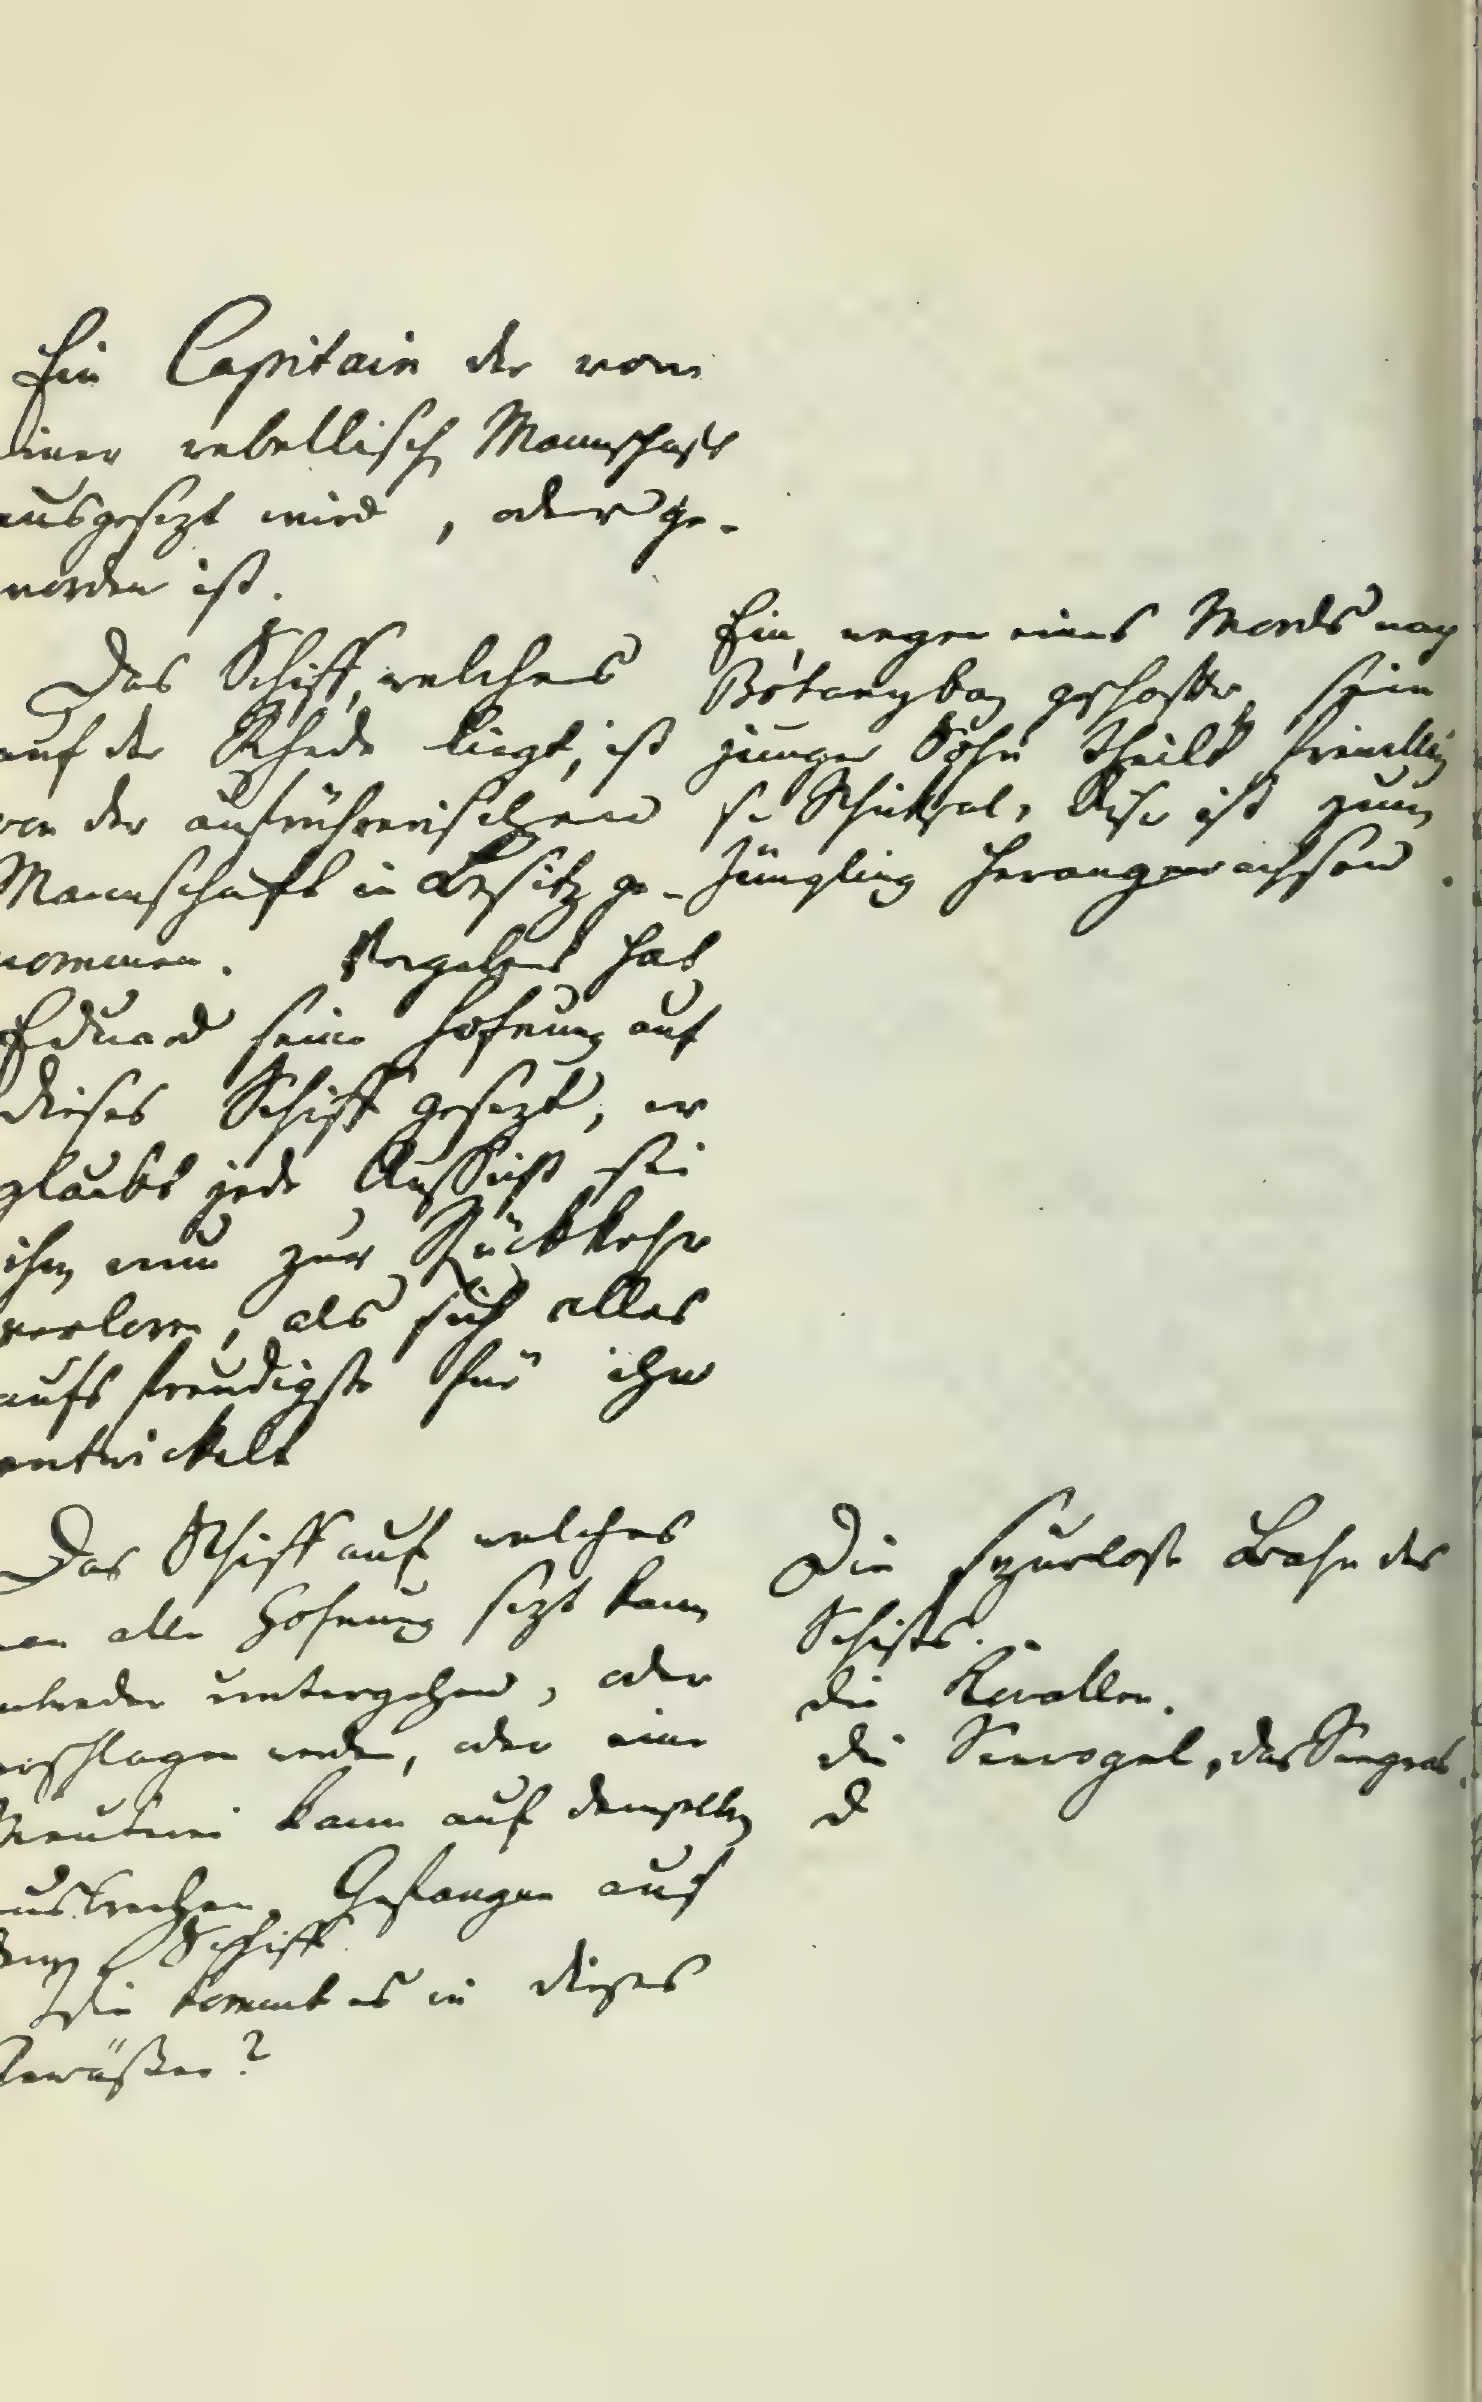 Ein Capitain der vom
einer rebellisch Mannschaft
ausgesezt wird, oder ge-
worden ist.
Das Schiff, welches
auf der Rhede liegt, ist
von der aufrührerischen
Mannschaft in Besitz ge-
nommen. Vergebens hat
Eduard seine Hofnung auf
dieses Schiff gesezt, er
glaubt jede Aussicht sei
ihm nun zur Rückkehr
verloren, als sich alles
aufs freudigste für ihn
entwickelt
Das Schiff auf welches
man alle Hofnung sezt kann
entweder untergehen, oder
verschlagen werden, oder eine
Meuterei kann auf demselben
ausbrechen. Gefangen auf
dem Schiff.
Wie kommt es in dieses
Gewäßer?
Ein, wegen eines Mords nach
Botanybay geschafter, sein
junger Sohn theilt freiwillig
s. Schicksal. Dieser ist zum
Jüngling herangewachsen.
Die spurlose Bahn des
Schiffs.
die Korallen.
die Seevögel, das Seegras.
d